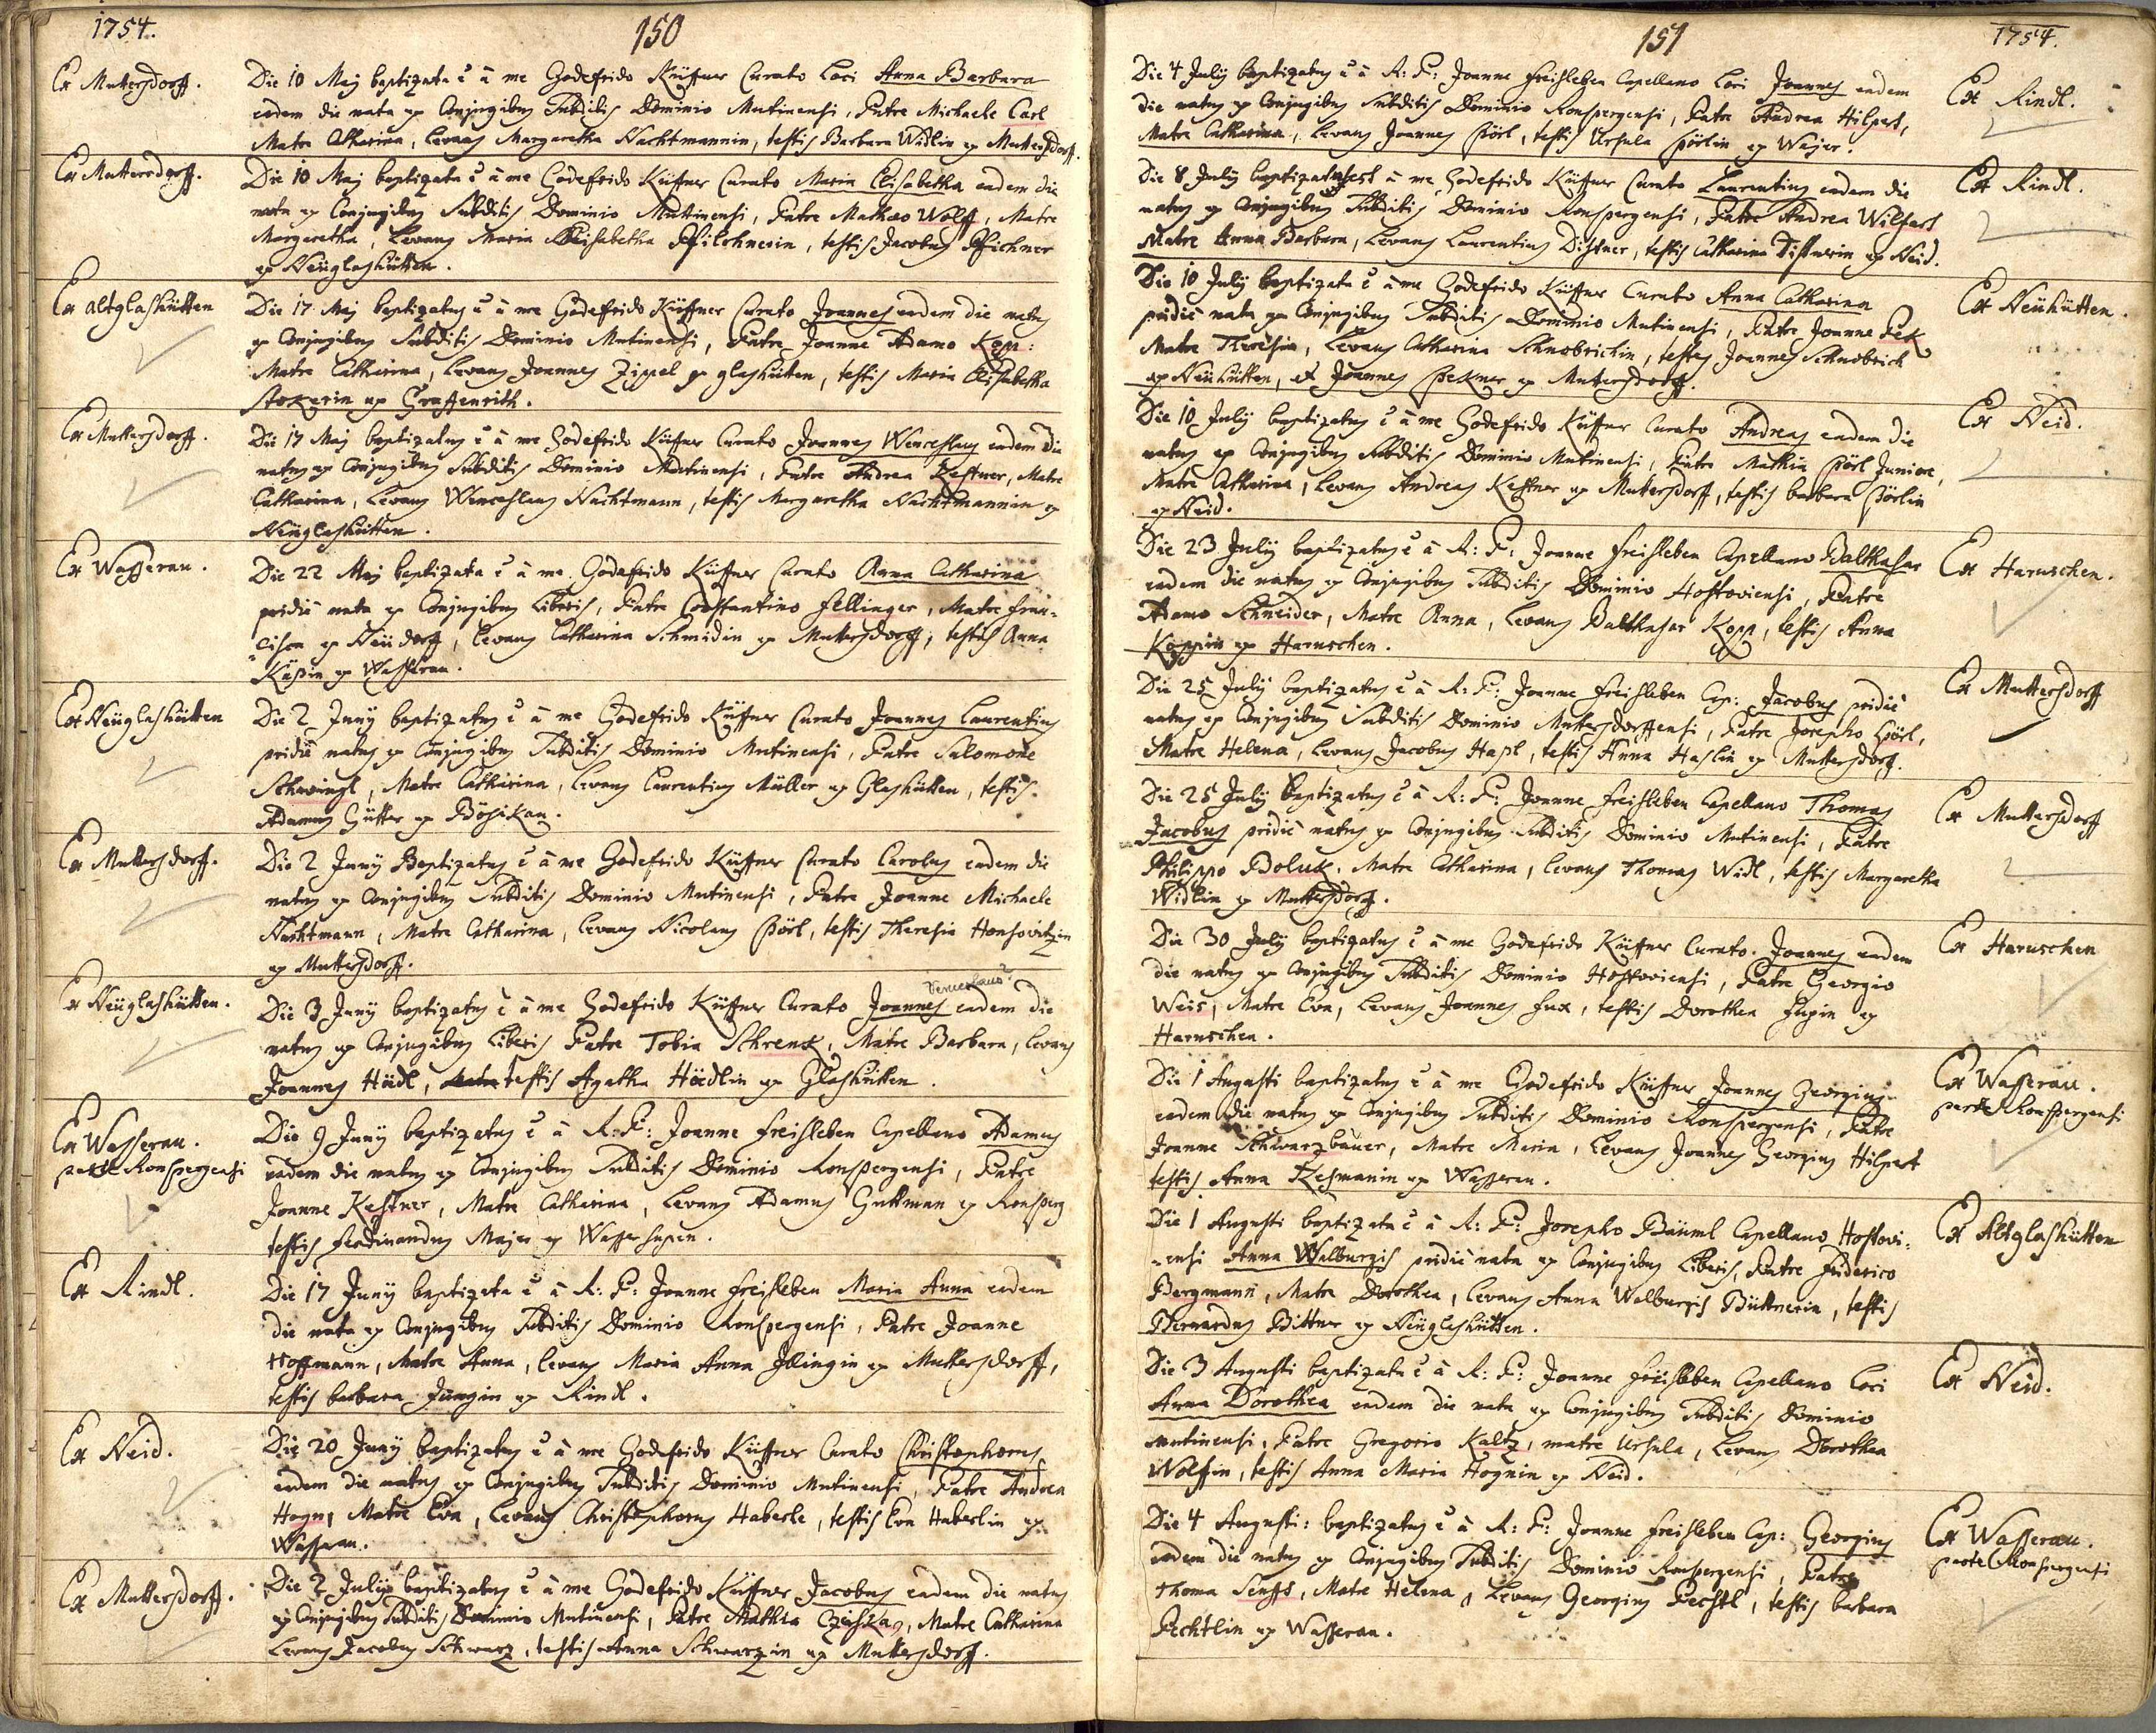 1754.
150
Ex Muttersdorff.
Die 10 Maÿ baptizata ē â me Godefrido Küffner Curato Loci Anna Barbara
eadem die nata ex Conjugibus Subditis Dominio Mutinensi, Patre Michaele Carl
Matre Catharina, Levans Margaretha Nachtmannin, testis Barbara Widlin ex Muttersdorff.
Ex Muttersdorff.
Die 10 Maÿ baptizata ē â me Godefrido Küffner Curato Maria Elisabetha eadem die
nata ex Conjugibus Subditis Dominio Mutinensi, Patre Mathæo Wolff, Matre
Margaretha, Levans Maria Elisabetha, testis Jacobus
ex Neüglashütten.
Ex altglashütten
Die 17 Maÿ baptizatus ē â me Godefrido Küffner Curato Joannes eadem die natus
ex Conjugibus Subditis Dominio Mutinensi, Patre Joanne Adamo Kopp:
Matre Catharina, Levans Joannes Zippel ex glashütten, testis Maria Elisabetha
Stokerin ex Graffenrith.
Ex Muttersdorff.
Die 17 Maÿ baptizatus ē â me Godefrido Küffner Curato Joannes Wenceslaus eadem die
natus ex Conjugibus Subditis Dominio Mutinensi, Patre Andrea Kestner, Matre
Catharina, Levans Wenceslaus Nachtmann, testis Margaretha Nachtmannin ex
Neüglashütten.
Ex Wasserau.
Die 22 Maÿ baptizata ē â me Godefrido Küffner Curato Anna Catharina
pridiè nata ex Conjugibus Liberis, Patre Constantino Fellinger, Matre Fran=
=cisca ex Neüdorff, Levans Catharina Schmidin ex Muttersdorff, testis Anna
Käsin ex Wasserau.
Ex Neüglashütten
Die 2 Junÿ baptizatus ē â me Godefrido Küffner Curato Joannes Laurentius
pridiè natus ex Conjugibus Subditis Dominio Mutinensi, Patre Salomone
Schwingl, Matre Catharina, Levans Laurentius Müller ex Glashütten, testis
Adamus Gütter ex Bösikau.
Ex Muttersdorff.
Die 2 Junÿ Baptizatus ē â me Godefrido Küffner Curato Carolus eadem die
natus ex Conjugibus Subditis Dominio Mutinensi, Patre Joanne Michaele
Nachtmann, Matre Catharina, Levans Nicolaus Pörl, testis Theresia Honsovitzin
ex Muttersdorff.
Ex Neüglashütten.
Venceslaus
Die 3 Junÿ baptizatus ē â me Godefrido Küffner Curato Joannes eadem die
natus ex Conjugibus Liberis Patre Tobia Schrenk, Matre Barbara, Levans
Joannes Hädl, testis Agatha Hädlin ex Glashütten.
Ex Wasserau.
parte Ronspergensi
Die 9 Junÿ baptizatus ē â R: P: Joanne Freisleben Capellano Adamus
eadem die natus ex Conjugibus Subditis Dominio Ronspergensi, Patre
Joanne Kestner, Matre Catharina, Levans Adamus Guttman ex Ronsperg
testis Ferdinandus Majer ex Wassersupen.
Ex Rindl.
Die 17 Junÿ baptizata ē â R: P: Joanne Freisleben Maria Anna eadem
die nata ex Conjugibus Subditis Dominio Ronspergensi, Patre Joanne
Hoffmann, Matre Anna, Levans Maria Anna Illingin ex Muttersdorff,
testis barbara Jungin ex Rindl.
Ex Neid.
Die 20 Junÿ baptizatus ē â me Godefrido Küffner Curato Christophorus
eadem die natus ex Conjugibus Subditis Dominio Mutinensi, Patre Andrea
Hogn, Matre Eva, Levans Christophorus Haberle, testis Eva Haberlin ex
Wasserau.
Ex Muttersdorff.
Die 2 Julÿ baptizatus ē â me Godefrido Küffner Jacobus eadem die natus
ex Conjugibus Subditis Dominio Mutinensi, Patre Mathia Czischka, Matre Catharina
Levans Jacobus Schwarz, testis Anna Schwarzin ex Muttersdorff.
151
1754.
Die 4 Julÿ baptizatus ē â R: P: Joanne Freisleben Capellano Loci Joannes eadem
die natus ex Conjugibus Subditis Dominio Ronspergensi, Patre Andrea Hilpert,
Matre Catharina, Levans Joannes Pörl, testis Ursula Pörlin ex Wajer.
Ex Rindl.
Die 8 Julÿ baptizatus est â me Godefrido Küffner Curato Laurentius eadem die
natus ex Conjugibus Subditis Dominio Ronspergensi, Patre Andrea Wilfart
Matre Anna Barbara, Levans Laurentius Distner, testis Catharina Distnerin ex Neid.
Ex Rindl.
Die 10 Julÿ baptizata ē â me Godefrido Küffner Curato Anna Catharina
pridiè nata ex Conjugibus Subditis Dominio Mutinensi, Patre Joanne Pek
Matre Theresia, Levans Catharina Schnobrichin, testes Joannes Schnobrich
ex Neühütten, et Joannes Pekner ex Muttersdorff.
Ex Neühütten.
Die 10 Julÿ baptizatus ē â me Godefrido Küffner Curato Andreas eadem die
natus ex Conjugibus Subditis Dominio Mutinensi, Patre Mathia Pörl Juniore,
Matre Catharina, Levans Andreas Kestner ex Muttersdorff, testis barbara Pörlin
ex Neid.
Ex Neid.
Die 23 Julÿ baptizatus ē â R: P: Joanne Freisleben Capellano Balthasar
eadem die natus ex Conjugibus Subditis Dominio Hostoviensi, Patre
Adamo Schneider, Matre Anna, Levans Balthasar Kopp, testis Anna
Koppin ex Haruschen.
Ex Haruschen.
Die 25 Julÿ baptizatus ē â R: P: Joanne Freisleben Cap: Jacobus pridiè
natus ex Conjugibus Subditis Dominio Muttersdorffensi, Patre Josepho Pörl,
Matre Helena, Levans Jacobus Hasl, testis Anna Haslin ex Muttersdorff.
Ex Muttersdorff
Die 25 Julÿ baptizatus ē â R: P: Joanne Freisleben Capellano Thomas
Jacobus pridiè natus ex Conjugibus Subditis Dominio Mutinensi, Patre
Philippo Boluk, Matre Catharina, Levans Thomas Widl, testis Margaretha
Widlin ex Muttersdorff.
Ex Muttersdorff
Die 30 Julÿ baptizatus ē â me Godefrido Küffner Curato Joannes eadem
die natus ex Conjugibus Subditis Dominio Hostoviensi, Patre Georgio
Weis, Matre Eva, Levans Joannes Fux, testis Dorothea Fuxin ex
Haruschen.
Ex Haruschen
Die 1 Augusti baptizatus ē â me Godefrido Küffner Joannes Georgius
eadem die natus ex Conjugibus Subditis Dominio Ronspergensi, Patre
Joanne Schwarzbauer, Matre Maria, Levans Joannes Georgius Hilpert
testis Anna Kesmanin ex Wasserau.
Ex Wasserau.
parte Ronspergensi
Die 1 Augusti baptizata ē â R: P: Josepho Bäuml Capellano Hostovi=
=ensi Anna Walburgis pridiè nata ex Conjugibus Liberis, Patre Friderico
Bergmann, Matre Dorothea, Levans Anna Walburgis Büttnerin, testis
Bernardus Bittner ex Neüglashütten.
Ex Altglashütten
Die 3 Augusti baptizata ē â R: P: Joanne Freisleben Capellano Loci
Anna Dorothea eadem die nata ex Conjugibus Subditis Dominio
Mutinensi, Patre Gregorio Kaltz, matre Ursula, Levans Dorothea
Wolffin, testis Anna Maria Hognin ex Neid.
Ex Neid.
Die 4 Augusti: baptizatus ē â R: P: Joanne Freisleben Cap: Georgius
eadem die natus ex Conjugibus Subditis Dominio Ronspergensi, Patre
Thoma Senfft, Matre Helena, Levans Georgius Pechtl, testis barbara
Pechtlin ex Wasserau.
Ex Wasserau.
parte Ronspergensi